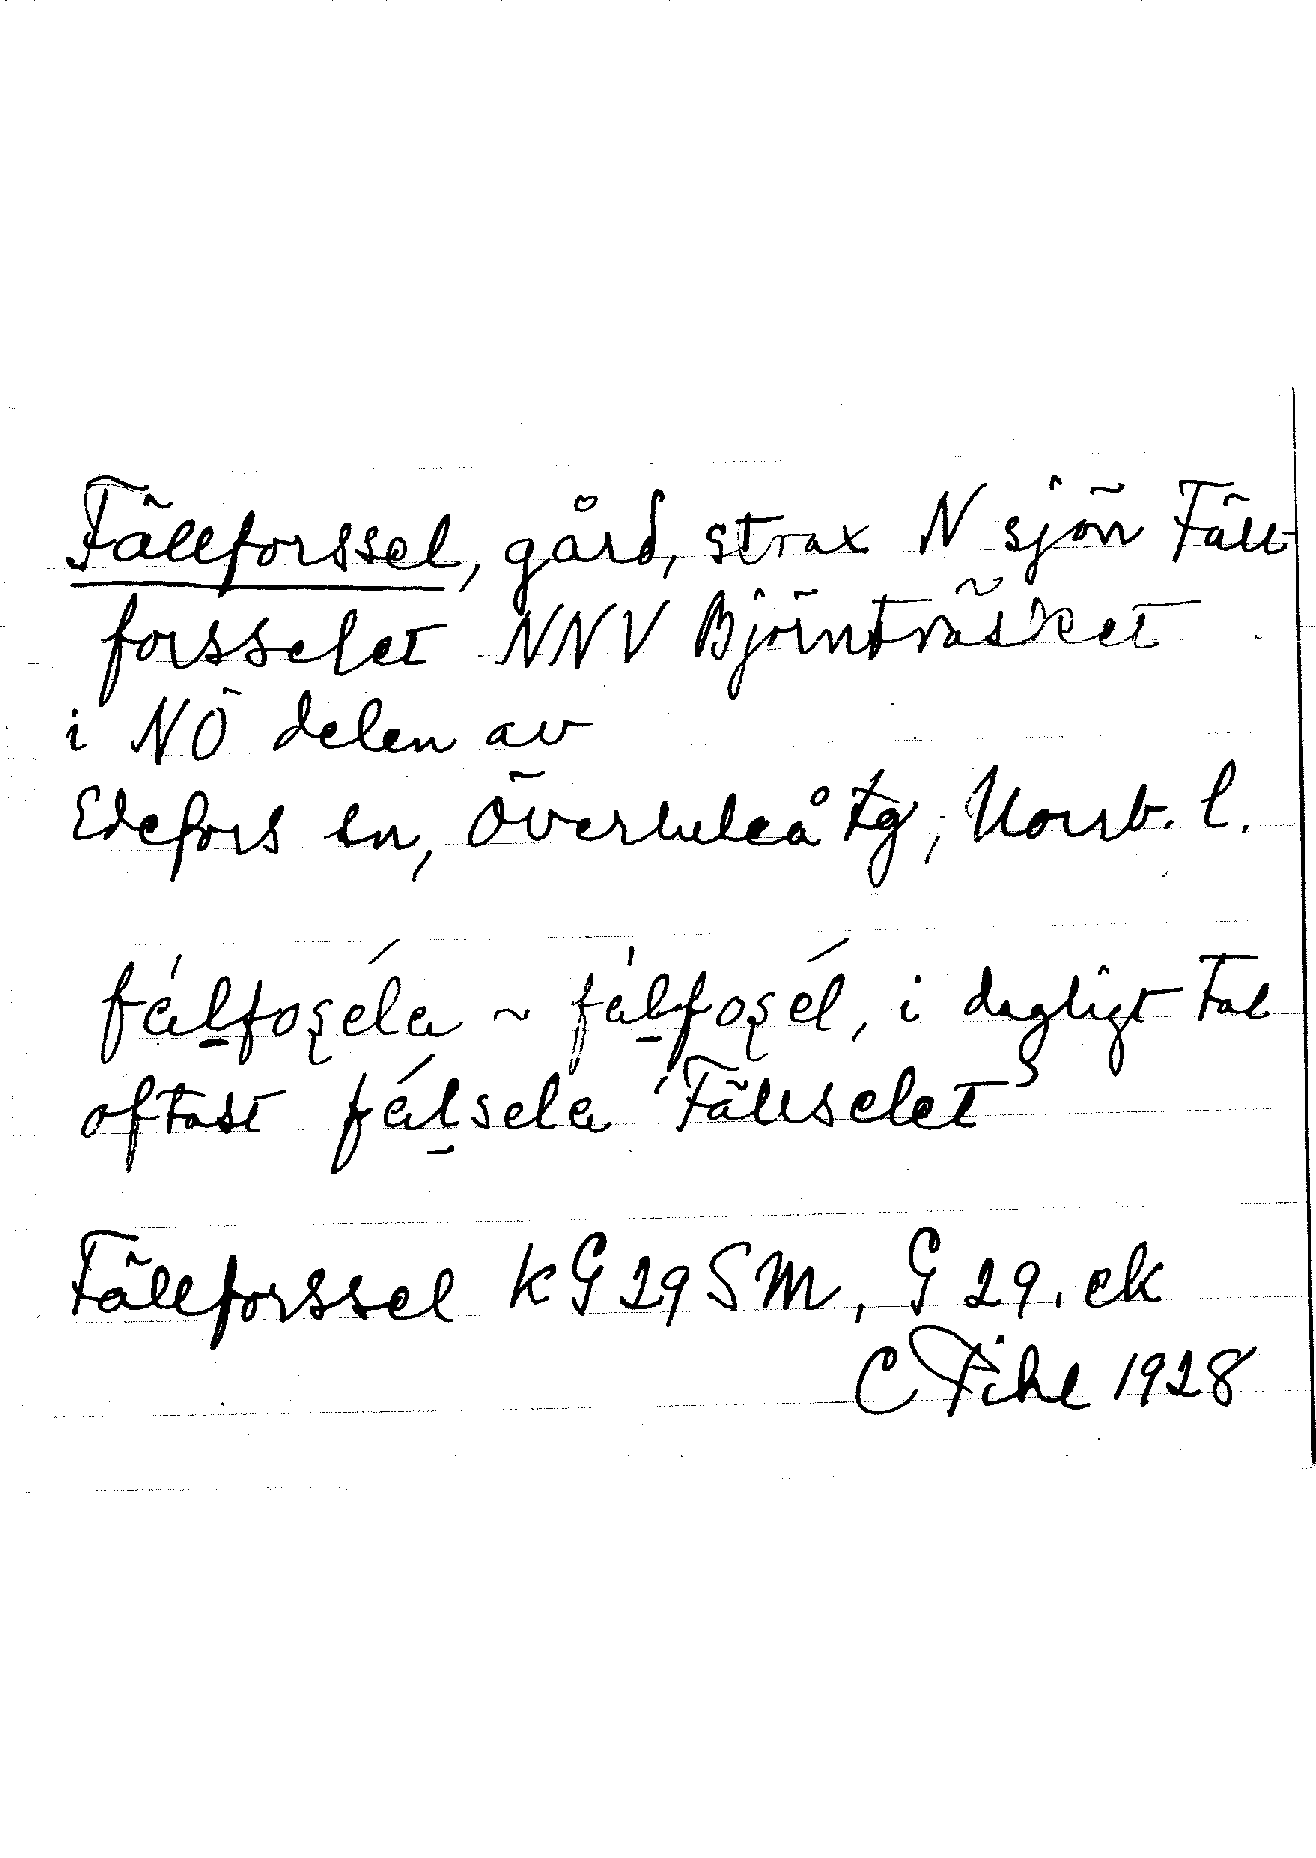 Fällforssel, gård, strax N sjön Fäll-
forsselet NNV Björnträsket
i NÖ delen av
Edefors sn, Överluleå tg, Norrb. l.
fálfoʂéla ~ fálfoʂél, i dagligt tal
oftast fálsela 'Fällselet'
Fällforssel kG29SM, G29. ek
C Pihl 1928